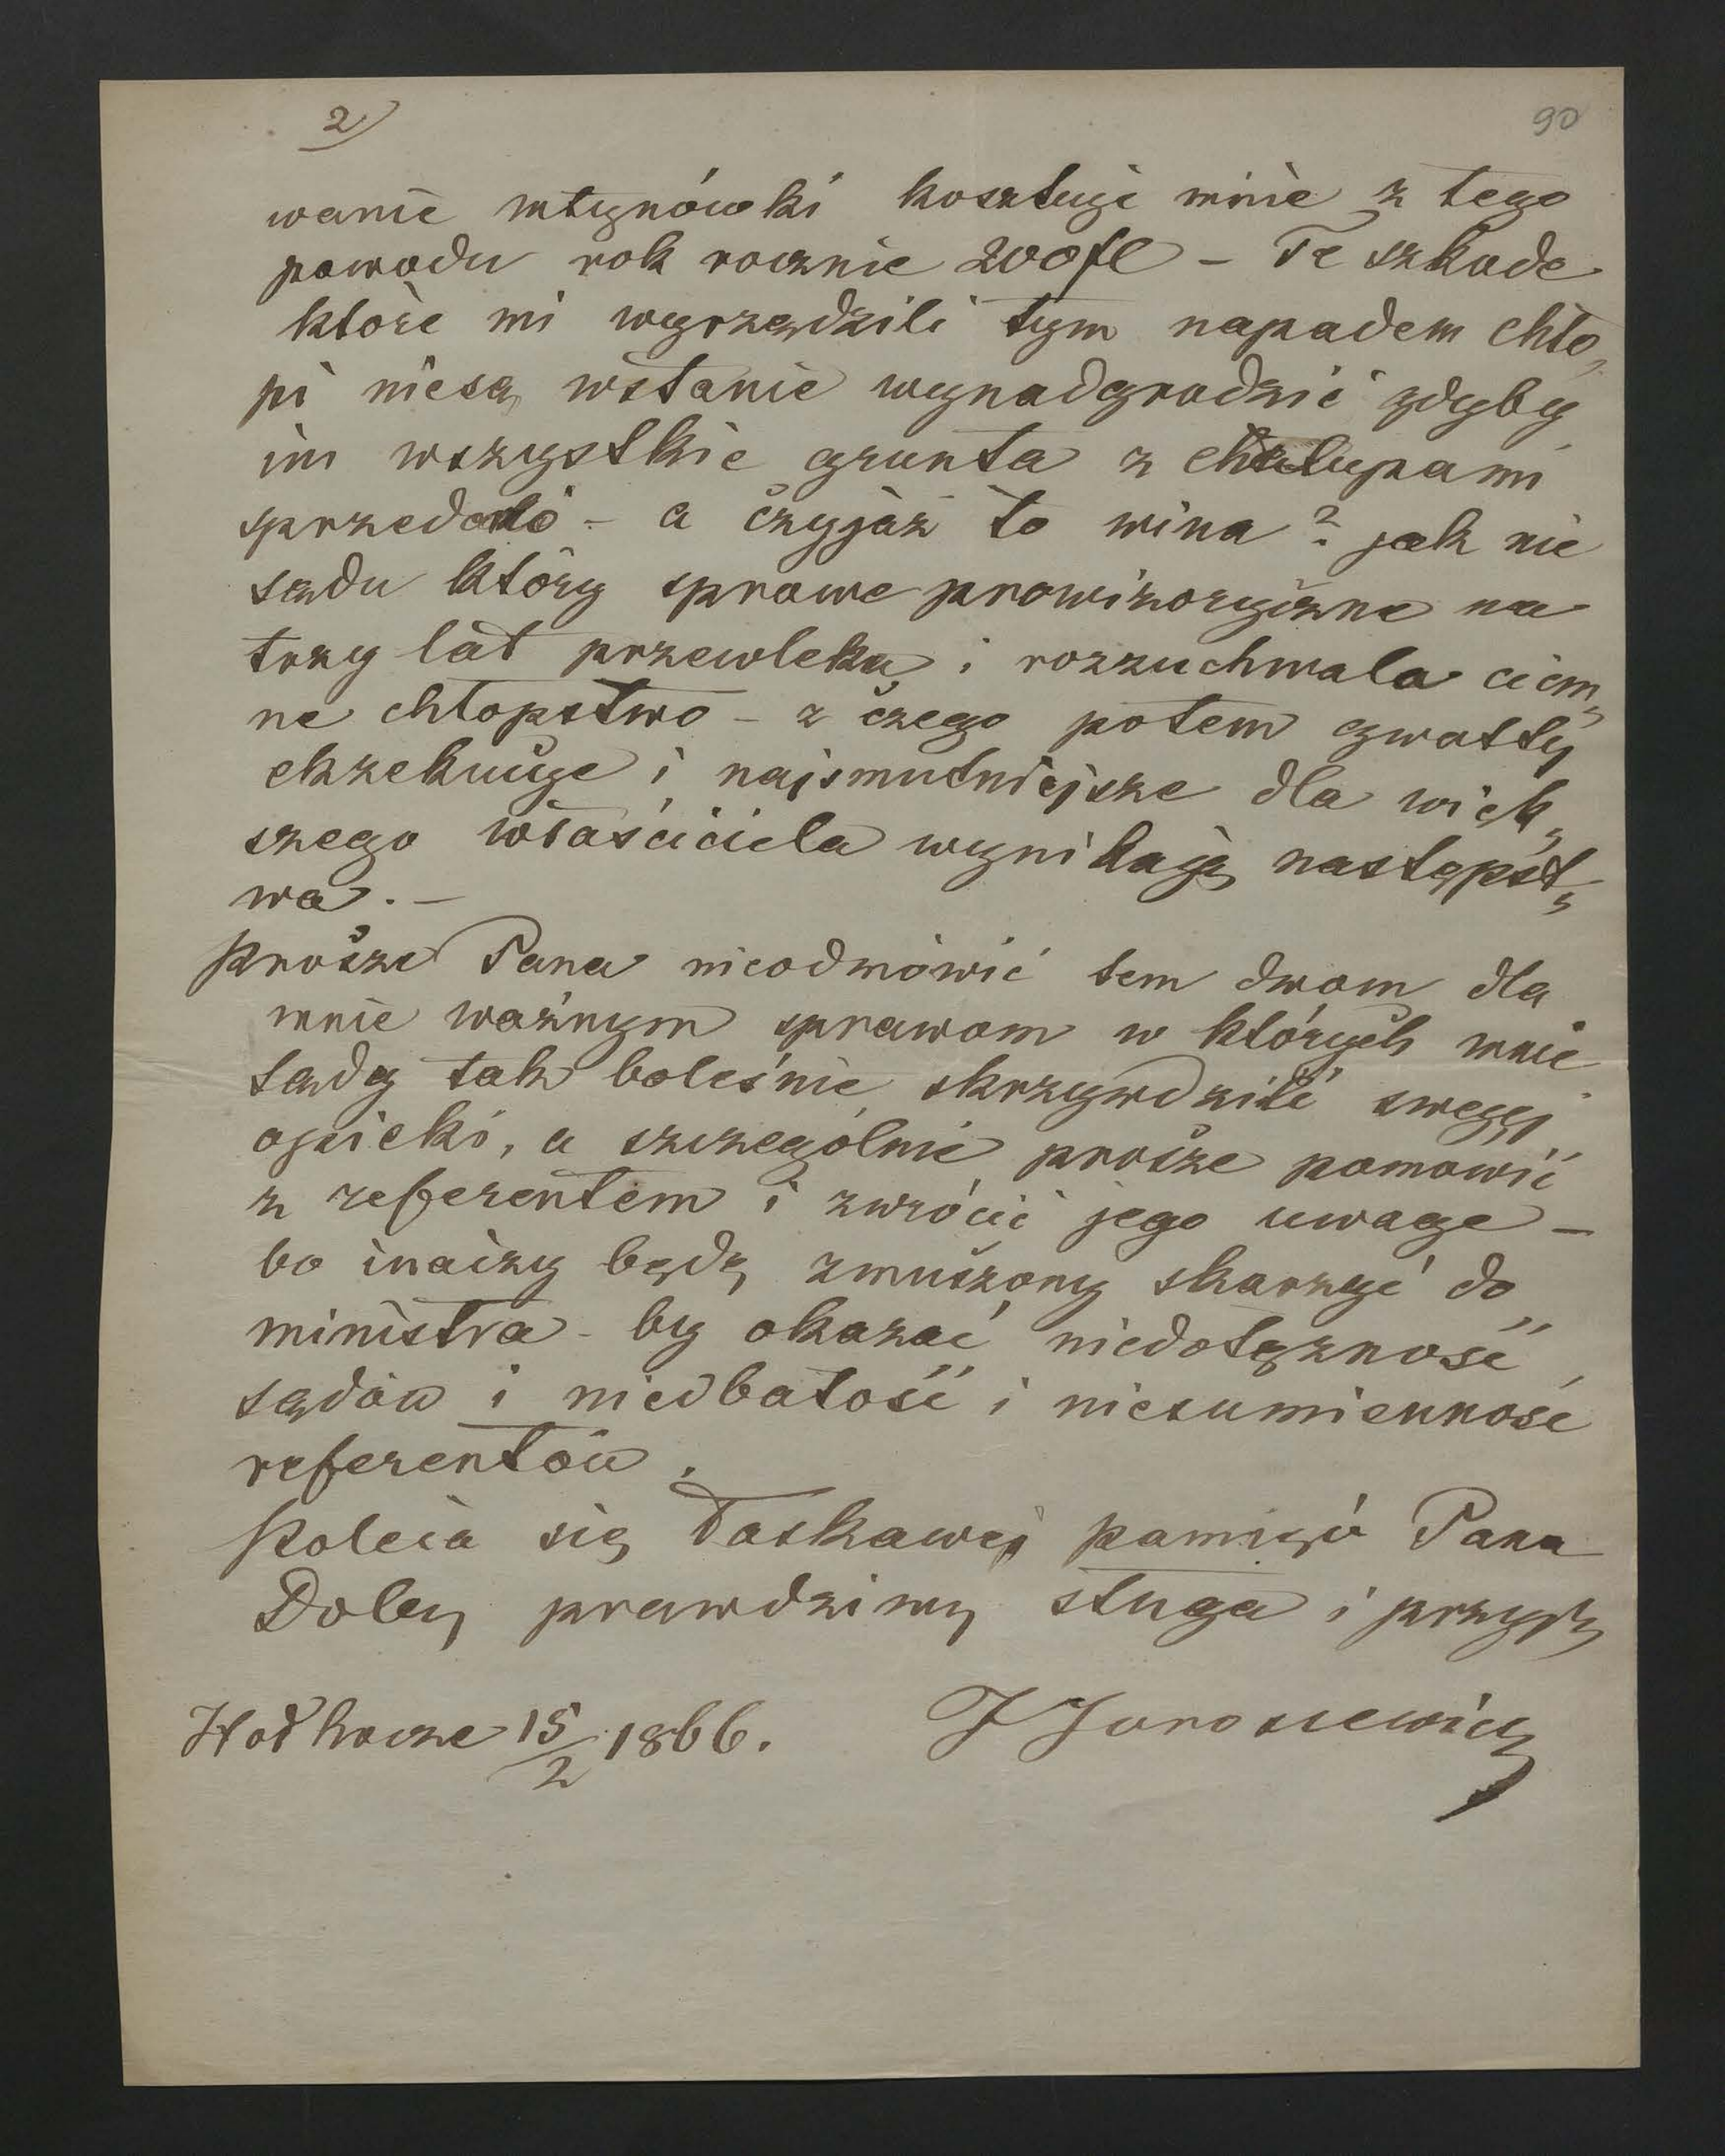 2) 90
wanie młynówki kosztuje mnie z tego
powodu rok rocznie 200 fl – Te szkode
które mi wyrządzili tym napadem chło„
pi niesą wstanie wynadgrodzić gdyby
im wszystkie grunta z chałupami
sprzedano – a czyjaż to wina? jak nie
sądu który sprawe prowizoryczne na
trzy lat przewleka i rozzuchwala ciem„
ne chłopstwo – z czego potem gwałty
ekzekucyje i najsmutniejsze dla więk„
szego właściciela wynikają następst„
wa. –
Prosze Pana nieodmówić tem dwom dla
mnie ważnym sprawom w których mnie
sądy tak boleśnie skrzywdzili swegej
opieki, a szczególnie prosze pomowić
z referentem i zwrócić jego uwage –
bo inaczy będę zmuszony skarzyć do
ministra – by okazać niedołężność
sądów i niedbałość i niesumienność
referentów.
Poleca się łaskawej pamięci Pana
Dobry prawdziwy sługa i przyj
Hołhocze 15/2 1866. J Jaroszewicz